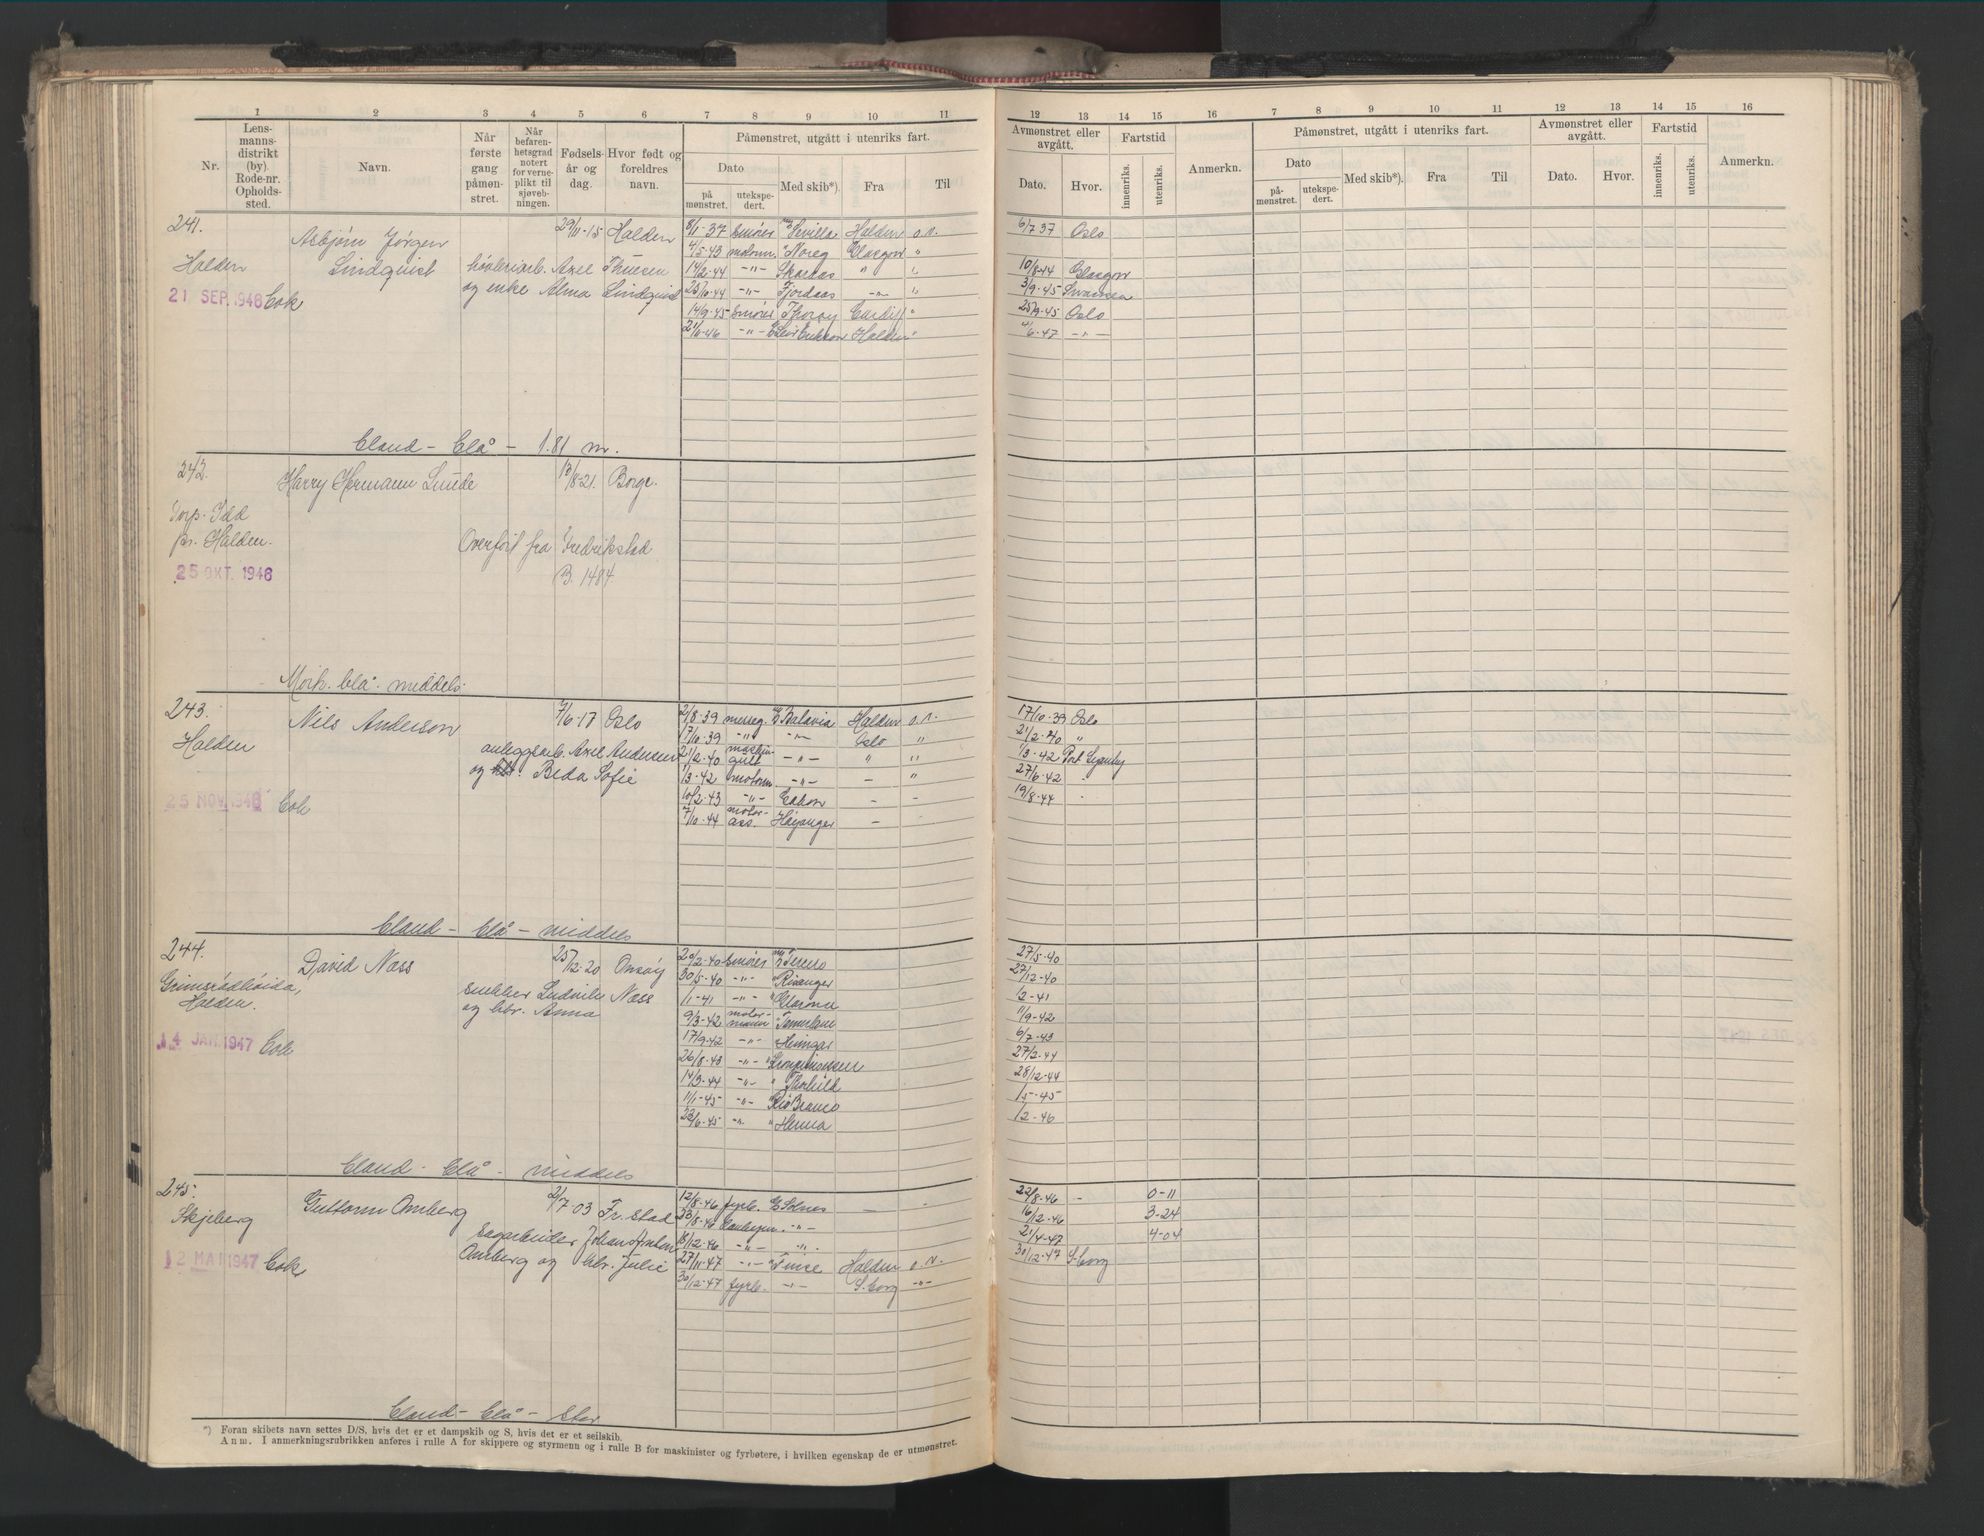 1 2 3 4 5 6 7 8 9 10 11
Nr.
Lens-
manns-
distrikt
(by).
Rode-nr.
Opholds-
sted.
Navn.
Når
første
gang
påmøn-
stret.
Når
befaren-
hetsgrad
notert
for verne-
plikt til
sjøveb-
ningen.
Fødsels-
år og
dag.
Hvor født og
foreldres
navn.
Påmønstret, utgått i utenriks fart.
Dato
på
mønstret.
utekspe-
dert.
Med skib*).
Fra
Til
12 13 14 15 16 7 8 9 10 11 12 13 14 15 16
Avmønstret eller
avgått.
Dato.
Hvor.
Fartstid
innenriks.
utenriks.
Anmerkn.
Påmønstret, utgått i utenriks fart.
Dato
på-
mønstret.
utekspe-
dert.
Med skib*).
Fra
Til
Avmønstret eller
avgått.
Dato.
Hvor.
Fartstid
innenriks.
utenriks.
Anmerkn.
241.
Halden
21 SEP. 1946
Asbjørn Jørgen
Lindquist
29/11-15 Halden
Axel Thuesen
og enke Alma Lindquist
8/1-37 smører Sevilla Halden o.v.
4/5-43 motorm. Noreg Glasgow "
14/2-44 -"- Skaraas " "
25/10-44 -"- Fjordaas -"- "
14/9-45 smører Thorøy Cardiff "
21/6-46 -"- Halden "
6/7 37 Oslo
10/8-44 Glasgow
3/9-45 Swansea
25/9-45 Oslo
4/6-47 -"-
Bland - blå - 1.81 m.
242.
Torp. Idd
pr. Halden.
25 OKT. 1946
Harry Hermann Lunde
13/8-21. Borge.
Overført fra Fredrikstad
B. 1484.
Mørk. blå. middels.
243.
Halden
25 NOV. 1946
Nils Anderson
7/6-17 Oslo
anleggsarb. Axel Andersen
og Beda Sofie
2/8-39 messeg. Batavia Halden o.v.
17/10-39 -"- -"- Oslo "
21/2-40 maskin-
gutt -"- " "
1/3-42 motorm -"- - "
10/2-43 -"- - -
7/10-44 motor-
ass. Høyanger -
17/10-39 Oslo
21/2-40 "
1/3-42
27/6-42 -
19/8-44 -
Bland - blå - middels
244.
Grimsrødhøida,
Halden.
14 JAN. 1947
David Næss
25/12-20 Onsøy
snekker Ludvik Næss
og hbr. Anna
20/2-40 smører Tereso
30/5-40 -"- Risanger
1/1-41 -"- Glarona
9/3-42 motor-
mann Tamerlane
17/9-42 -"- Heimgar
26/8-43 -"- Kronprinsessen
14/3-44 -"- " Thorhild
11/1-45 -"- Rio Branco
23/6-45 -"- " Herma
27/5-40
27/12-40
1/2-41
11/9-42
6/7-43
27/2-44
28/12-44
1/5-45
1/2-46
Bland - blå - middels
245.
Skjeberg
12 MAI 1947
Guttorm Omberg
2/7-03 Fr.stad
sagarbeider Johan Anton
Omberg og hbr. Julie
12/8-46 fyrb. - -
23/8-46 -"-
18/12-46 -"- -"-
27/11-47 -"- " Finse Halden o.v.
30/12-47 fyrb. -"- S.borg -"-
22/8-46 - 0-11
16/12-46 3-24
21/4-47 4-04
30/12-47 S.borg
Bland - blå - stor
*) Foran skibets navn settes D/S, hvis det er et dampskib og S, hvis det er et seilskib.
Anm. I anmerkningsrubrikken anføres i rulle A for skippere og styrmenn og i rulle B for maskinister og fyrbøtere, i hvilken egenskap de er utmønstret.